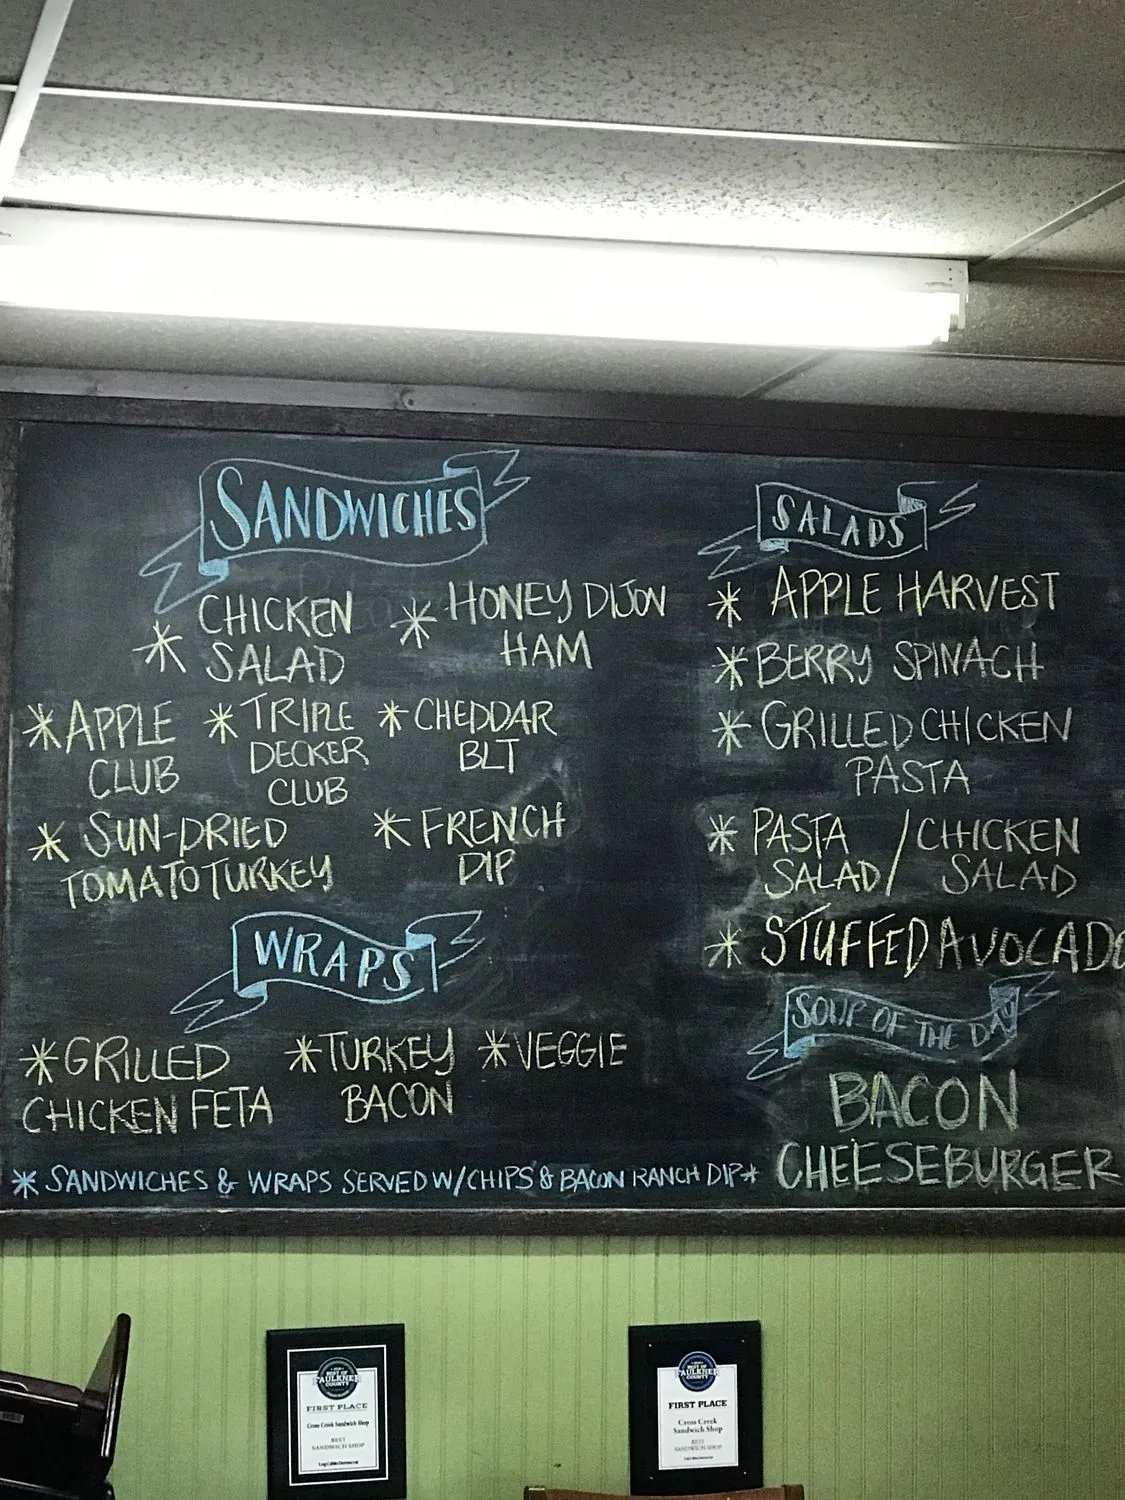 SANDWICHES
* CHICKEN SALAD
* HONEY DIJON HAM
* APPLE CLUB
* TRIPLE DECKER CLUB
* CHEDDAR BLT
* SUN-DRIED TOMATO TURKEY
* FRENCH DIP
WRAPS
* GRILLED CHICKEN FETA
* TURKEY BACON
* VEGGIE
* SANDWICHES & WRAPS SERVED W/CHIPS & BACON RANCH DIP *
SALADS
* APPLE HARVEST
* BERRY SPINACH
* GRILLED CHICKEN
PASTA
* PASTA SALAD / CHICKEN SALAD
* STUFFED AVOCADO
SOUP OF THE DAY
BACON
CHEESEBURGER
BEST OF
FAULKNER
COUNTY
FIRST PLACE
Cross Creek Sandwich Shop
BEST
SANDWICH SHOP
BEST OF
FAULKNER
COUNTY
FIRST PLACE
Cross Creek
Sandwich Shop
BEST
SANDWICH SHOP